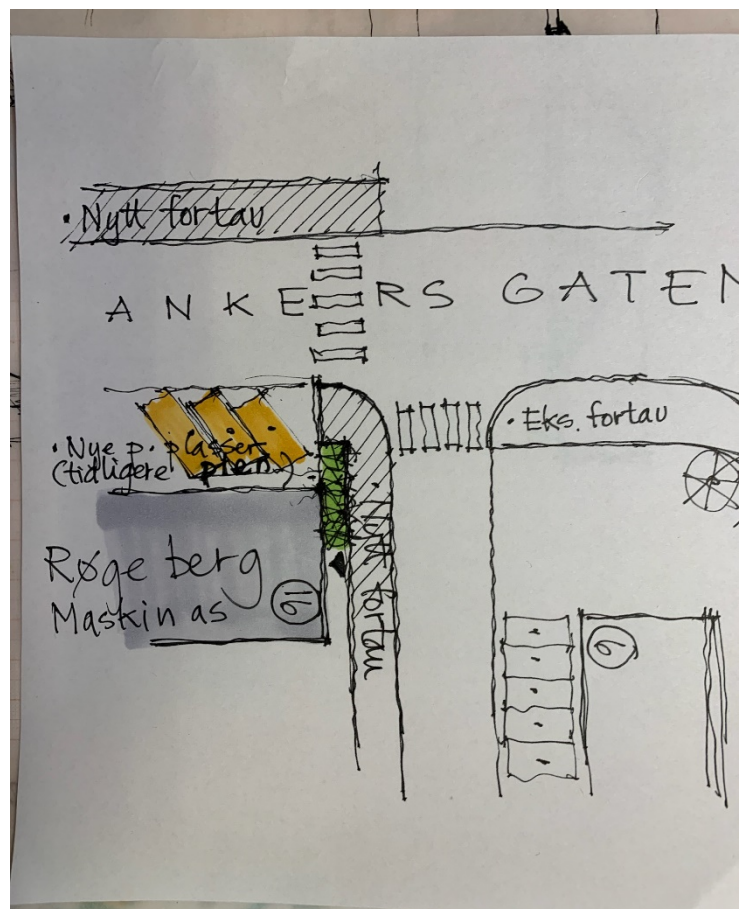 • Nytt fortau
ANKERS GATEN
• Eks. fortau
• Nye p. plasser
(tidligere plen)
• Nytt fortau
Røgeberg
Maskin as
16
9